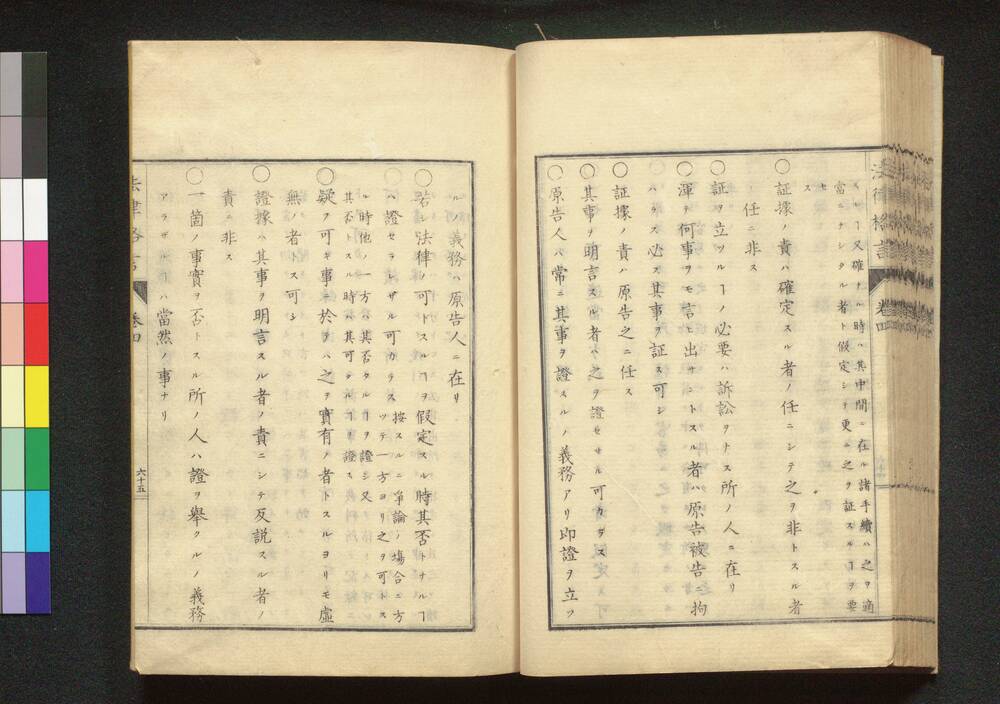 ルヿ又確ナル時ハ其中間ニ在ル諸手續ハ之ヲ適
當ニナシタル者ト假定シテ更ニ之ヲ証スルヿヲ要
セス
○証據ノ責ハ確定スル者ノ任ニシテ之ヲ非トスル者
ノ任ニ非ス
○証ヲ立ツルヿノ必要ハ訴訟ヲナス所ノ人ニ在リ
○渾テ何事ヲモ言ヒ出サントスル者ハ原告被告ニ拘
ハラス必ズ其事ヲ証ス可シ
○証據ノ責ハ原告之ニ任ス
○其事ヲ明言スル者ハ之ヲ證セサル可カラズ
○原告人ハ常ニ其事ヲ證スルノ義務アリ即證ヲ立ツ
法律格言 卷四
ルノ義務ハ原告人ニ在リ
○若シ法律ノ可トスルヿヲ假定スル時其否トナルヿ
ハ證セラレザル可カラス
按スルニ爭論ノ塲合ニ方
ツテ一方ヨリ之ヲ可トス
ル時他ノ一方ハ其否タルヿヲ證シ又
其否トスル時ハ其可タルヿヲ證ス
○疑フ可キ事ニ於テハ之ヲ實有ノ者トスルヨリモ虛
無ノ者トス可シ
○證據ハ其事ヲ明言スル者ノ責ニシテ反説スル者ノ
責ニ非ス
○一箇ノ事實ヲ否トスル所ノ人ハ證ヲ舉クルノ義務
アラザルハ當然ノ事ナリ
法律格言 卷四
六十五